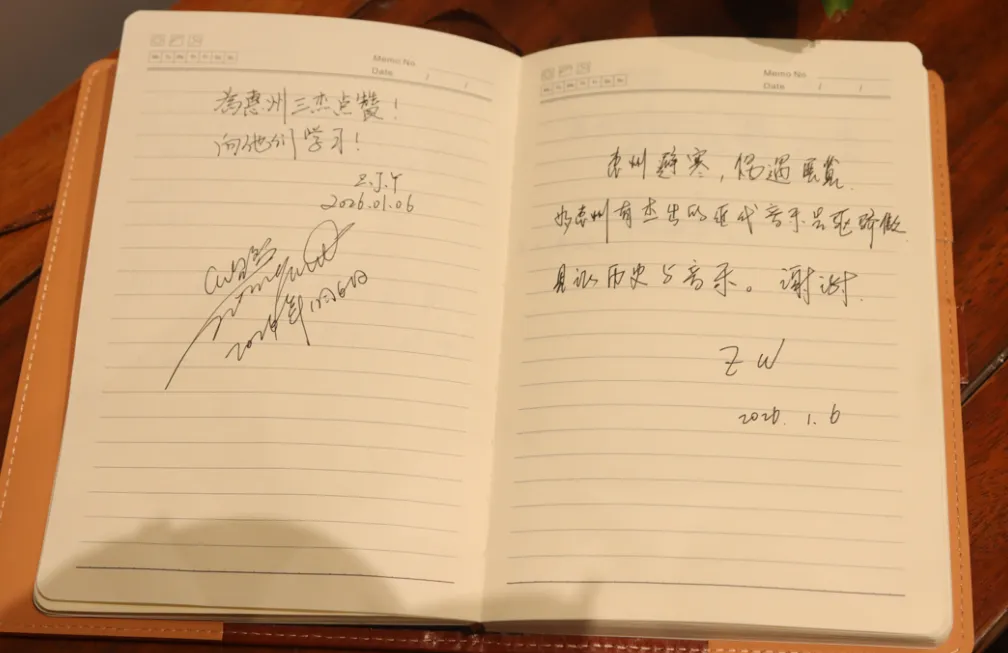 Memo No.
Date / /
为惠州三杰点赞！
向他们学习！
Z.J.Y
2026.01.06
2026年1月6日
Memo No.
Date / /
惠州 寒，偶遇
为惠州有杰出的近代音乐 骄傲
见证历史与音乐。谢谢
Z W
2026.1.6